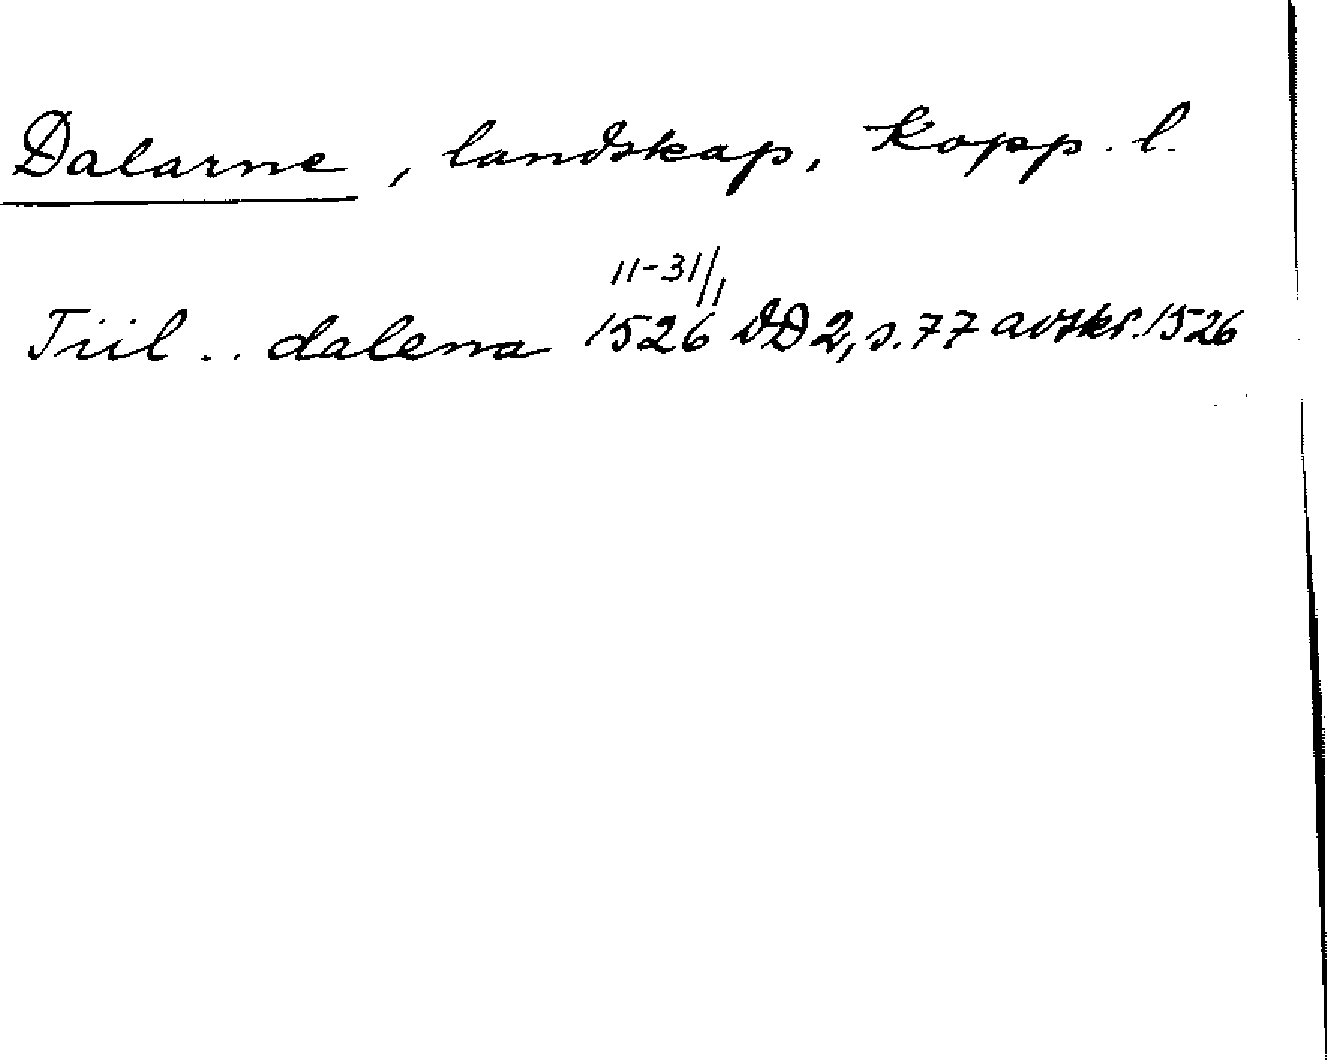 Dalarne, landskap, Kopp. l.
11-31/1
Tiil .. dalena 1526 DD2, s. 77 avskr. 1526